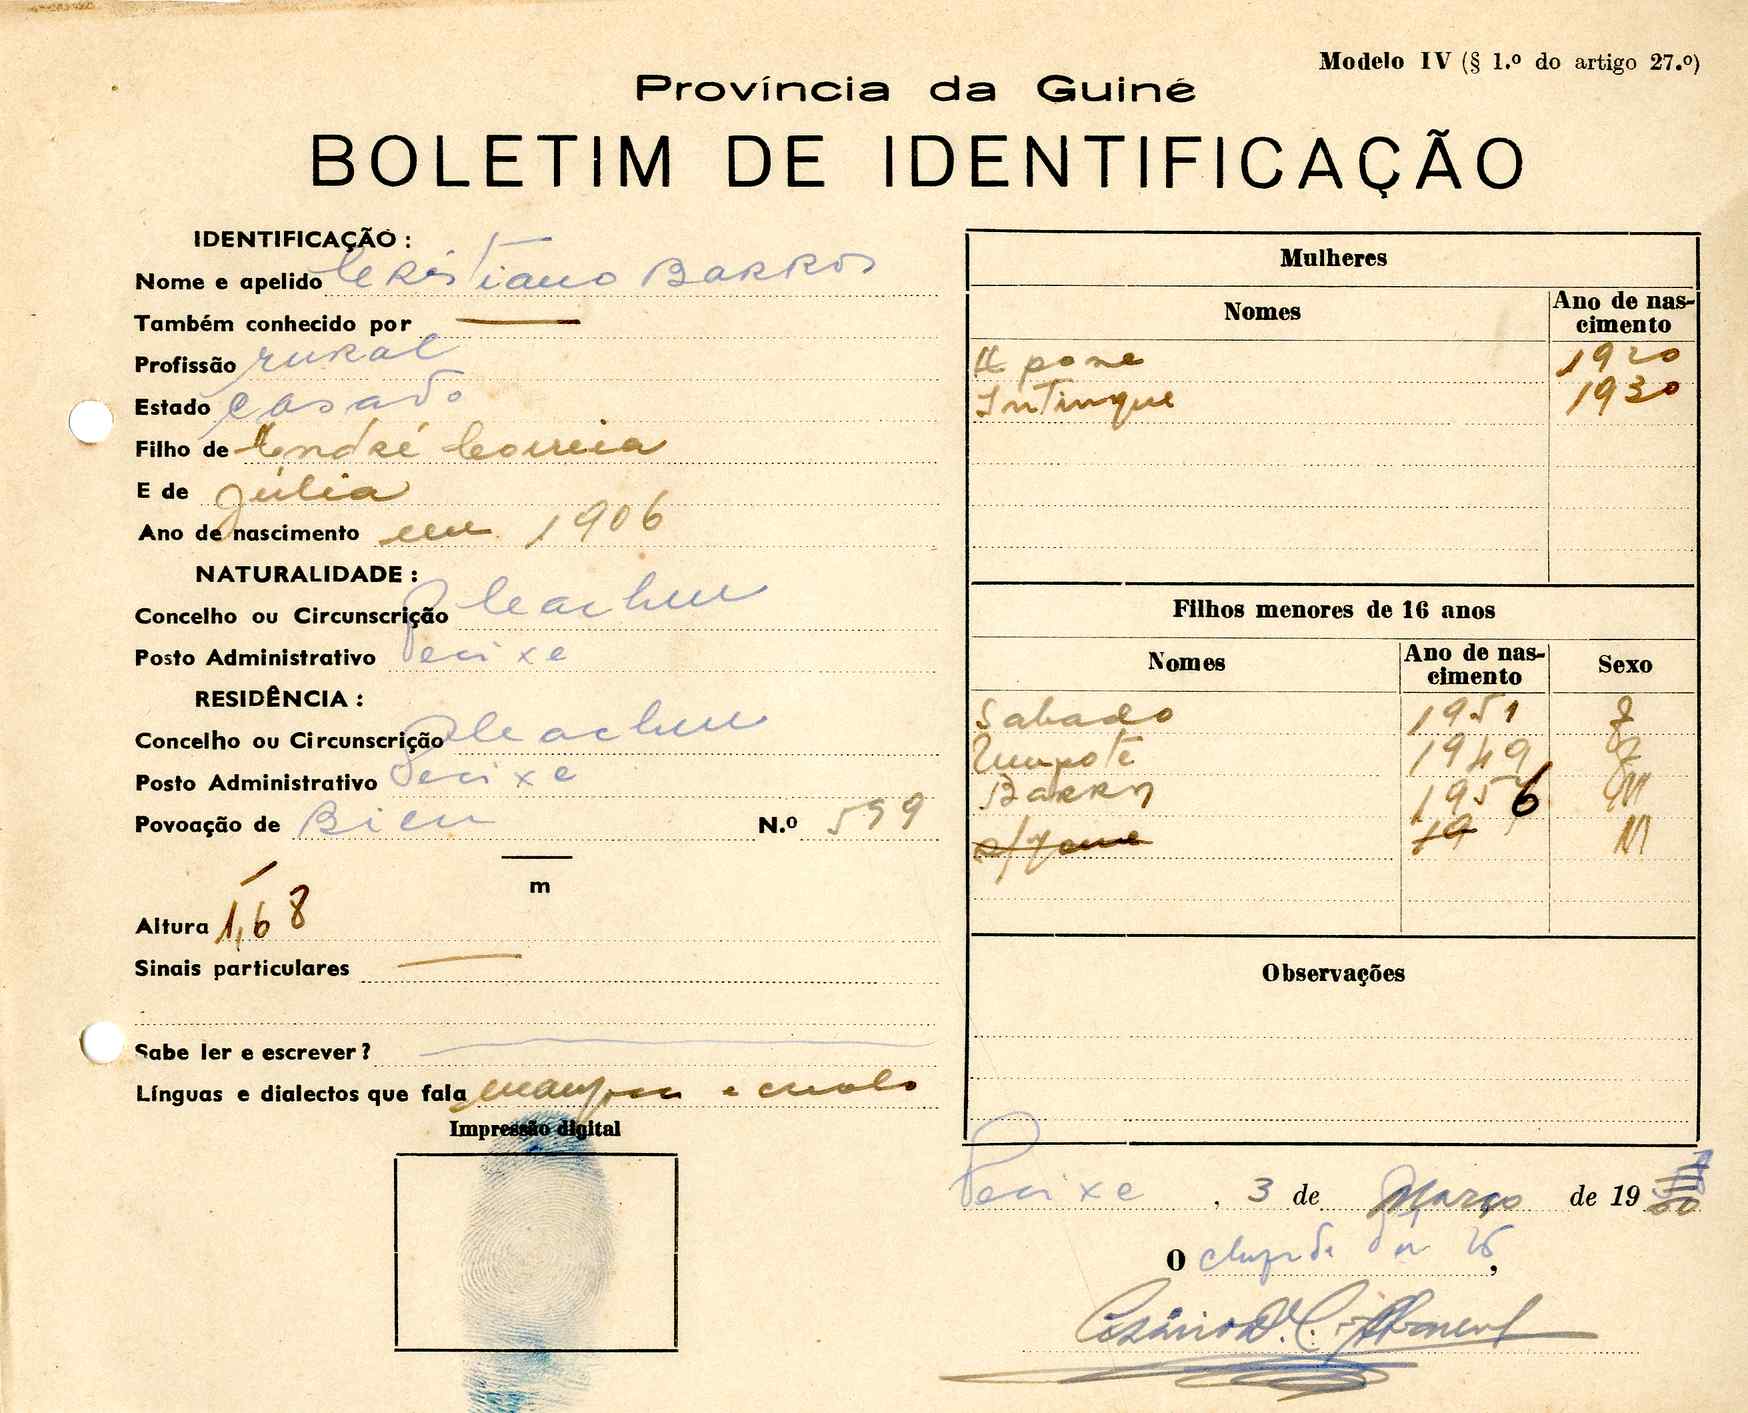 Modelo IV (§ 1.º do artigo 27.º)
Província da Guiné
BOLETIM DE IDENTIFICAÇÃO
IDENTIFICAÇÃO :
Nome e apelido Cristiano Barros
Também conhecido por —
Profissão rural
Estado casado
Filho de André Correia
E de Júlia
Ano de nascimento em 1906
NATURALIDADE :
Concelho ou Circunscrição
Posto Administrativo Pecixe
RESIDÊNCIA :
Concelho ou Circunscrição
Posto Administrativo Pecixe
Povoação de N.º 599
m
Altura 1,68
Sinais particulares —
Sabe ler e escrever ? —
Línguas e dialectos que fala e creolo
Impressão digital
Mulheres
Nomes Ano de nas-
cimento
1920
Intinque 1930
Filhos menores de 16 anos
Nomes Ano de nas-
cimento Sexo
Sabado 1951
1949
1956 M
19 M
Observações
Pecixe, 3 de Março de 19
O